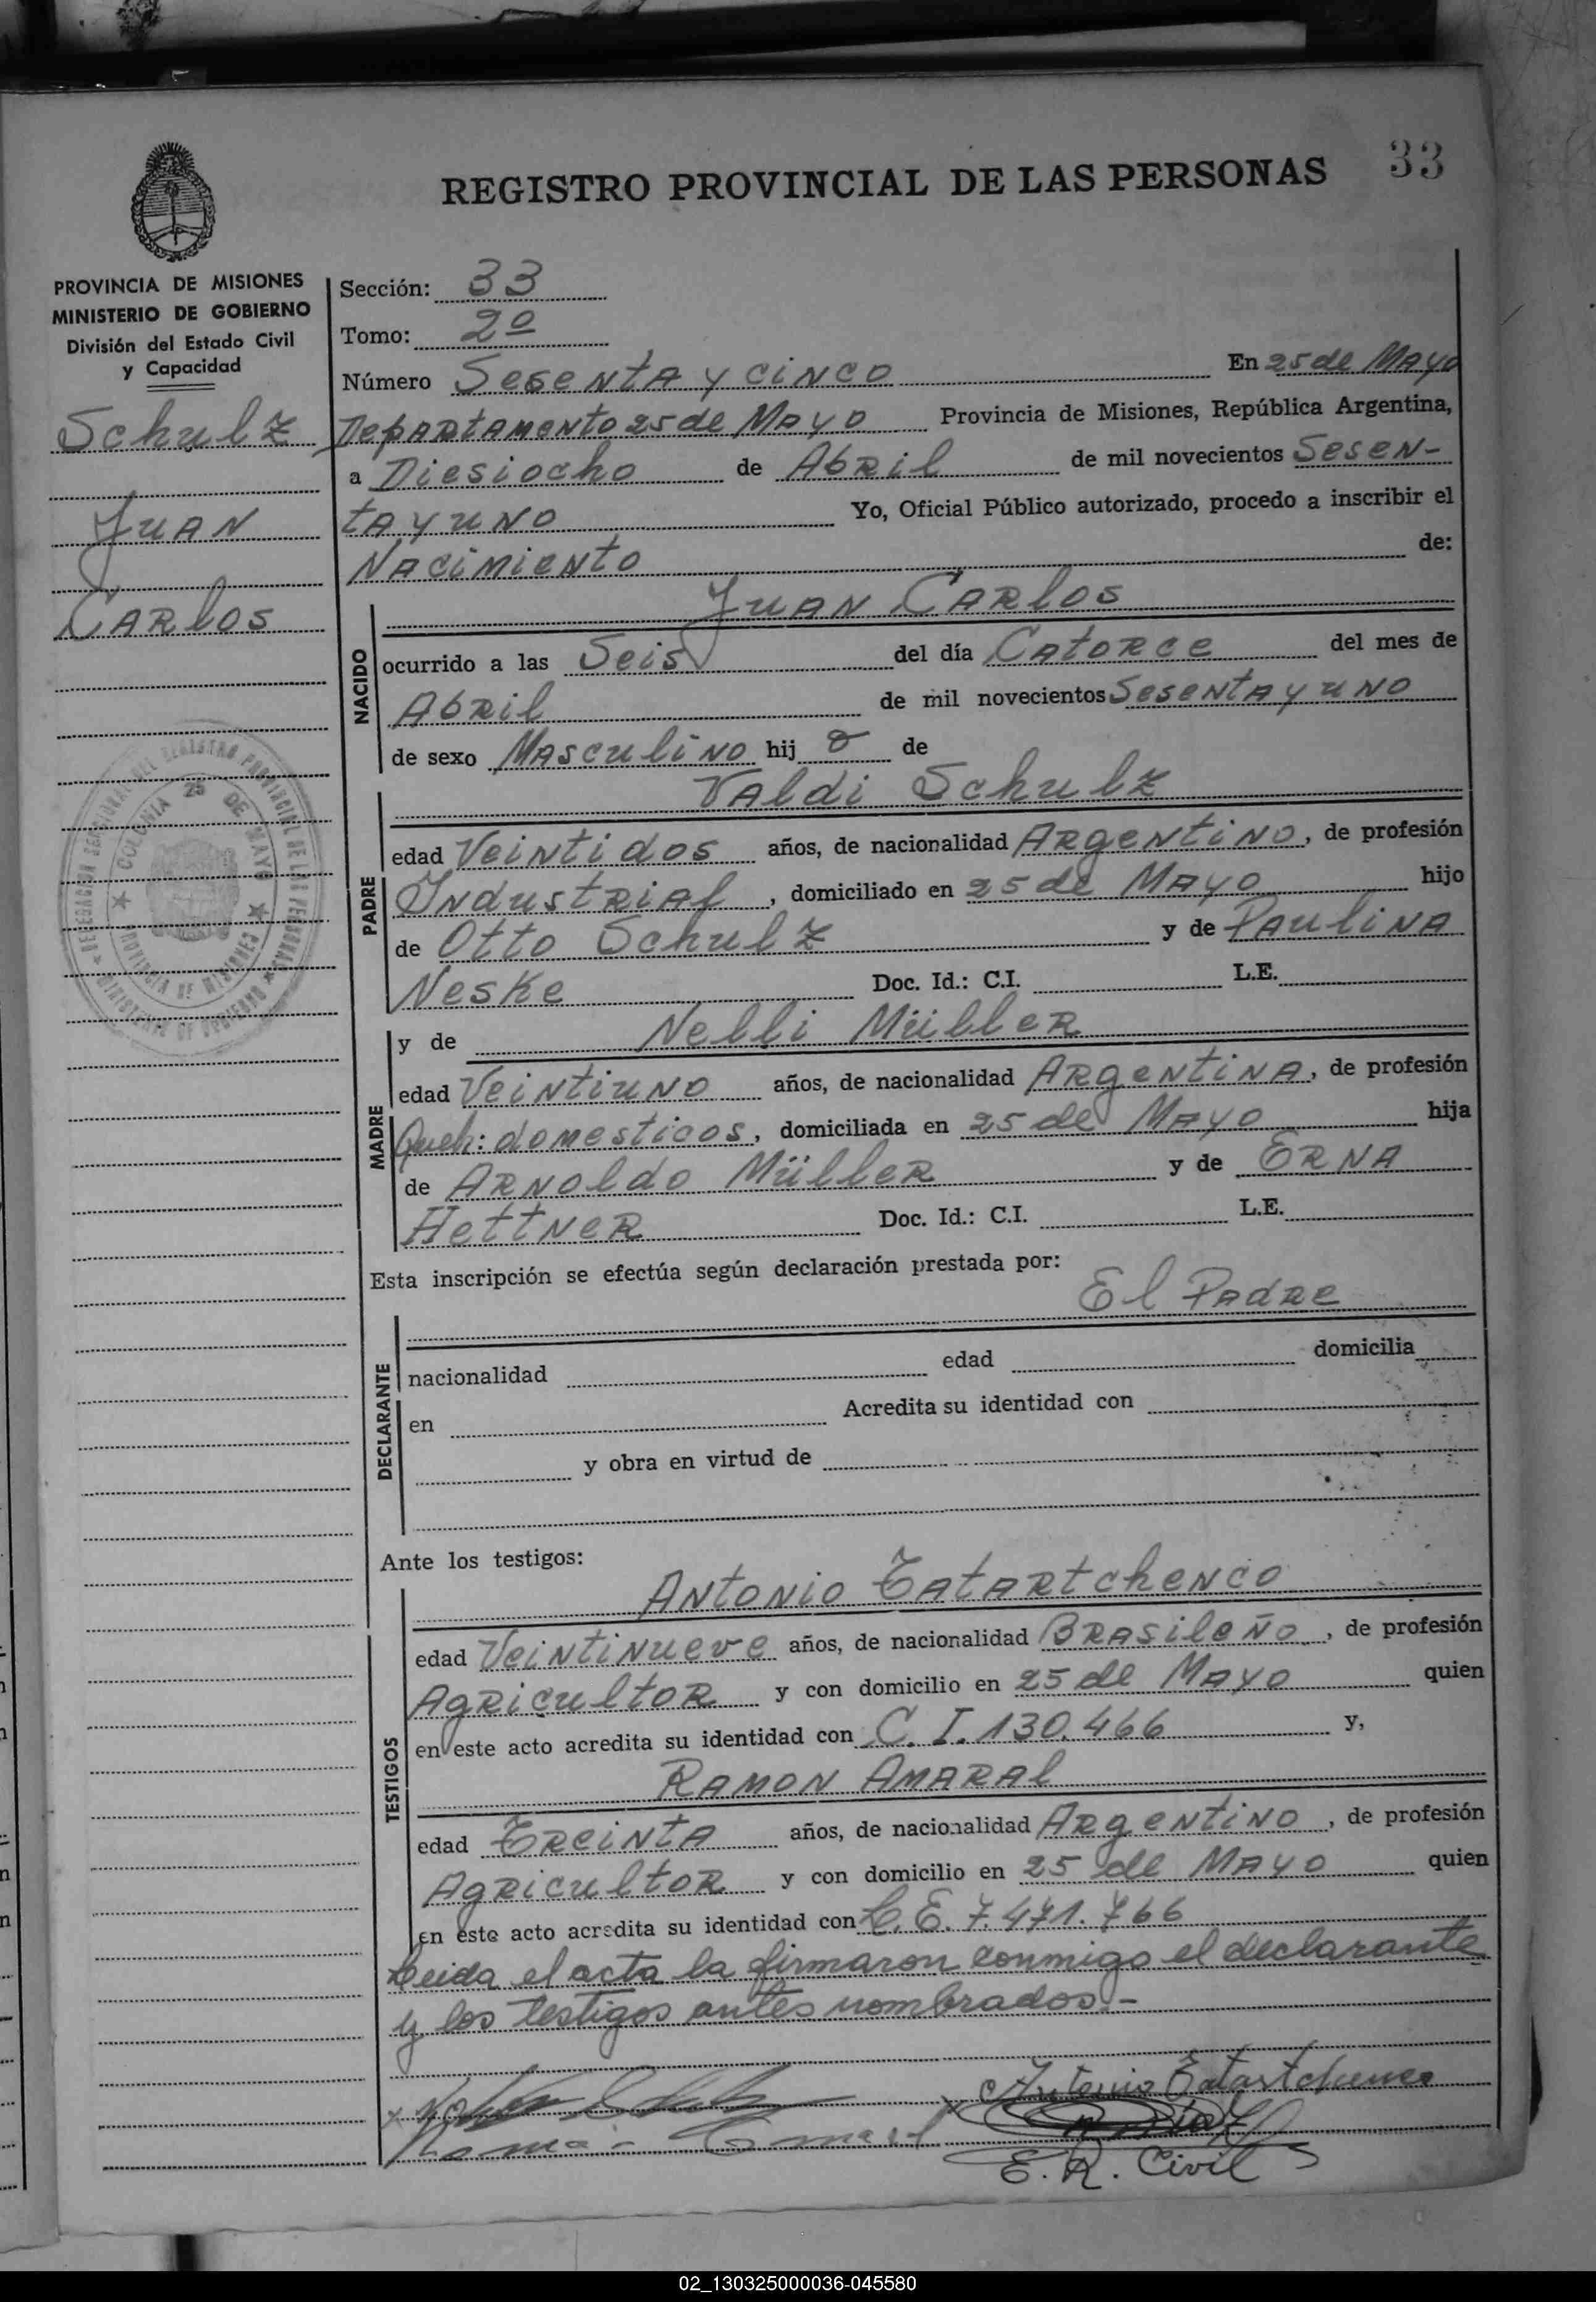 33
REGISTRO PROVINCIAL DE LAS PERSONAS
PROVINCIA DE MISIONES
MINISTERIO DE GOBIERNO
División del Estado Civil
y Capacidad
Schulz
Juan
Carlos
COLONIA 25 DE MAYO
PROVINCIA DE MISIONES
Sección: 33
Tomo: 2º
Número Sesenta y cinco En 25 de Mayo
Departamento 25 de Mayo Provincia de Misiones, República Argentina,
a Diesiocho de Abril de mil novecientos Sesen-
ta y uno Yo, Oficial Público autorizado, procedo a inscribir el
Nacimiento de:
Juan Carlos
NACIDO
ocurrido a las Seis del día Catorce del mes de
Abril de mil novecientos Sesenta y uno
de sexo Masculino hij o de
Valdi Schulz
PADRE
edad Veintidos años, de nacionalidad Argentino, de profesión
Industrial, domiciliado en 25 de Mayo hijo
de Otto Schulz y de Paulina
Neske Doc. Id.: C.I. L.E.
y de Nelli Müller
MADRE
edad Veintiuno años, de nacionalidad Argentina, de profesión
Queh: domesticos, domiciliada en 25 de Mayo hija
de Arnoldo Müller y de Erna
Hettner Doc. Id.: C.I. L.E.
Esta inscripción se efectúa según declaración prestada por:
El Padre
DECLARANTE
nacionalidad edad domicilia
en Acredita su identidad con
y obra en virtud de
Ante los testigos:
Antonio Tatartchenco
TESTIGOS
edad Veintinueve años, de nacionalidad Brasileño, de profesión
Agricultor y con domicilio en 25 de Mayo quien
en este acto acredita su identidad con C. I. 130.466 y,
Ramon Amaral
edad Treinta años, de nacionalidad Argentino, de profesión
Agricultor y con domicilio en 25 de Mayo quien
en este acto acredita su identidad con L. E. 7.471.766
Leida el acta la firmaron conmigo el declarante
y los testigos antes nombrados.-
Antonio Tatartchenco
E. R. Civil
02_130325000036-045580